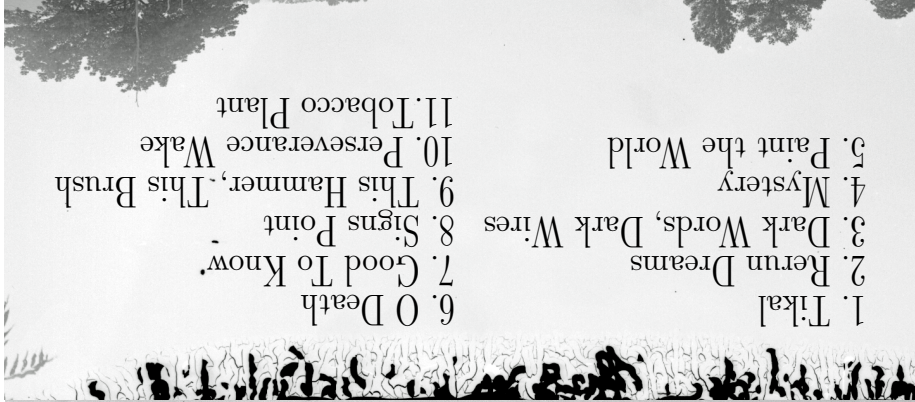 1. Tikal
2. Rerun Dreams
3. Dark Words, Dark Wires
4. Mystery
5. Paint the World
6. O Death
7. Good To Know
8. Signs Point
9. This Hammer, This Brush
10. Perseverance Wake
11. Tobacco Plant